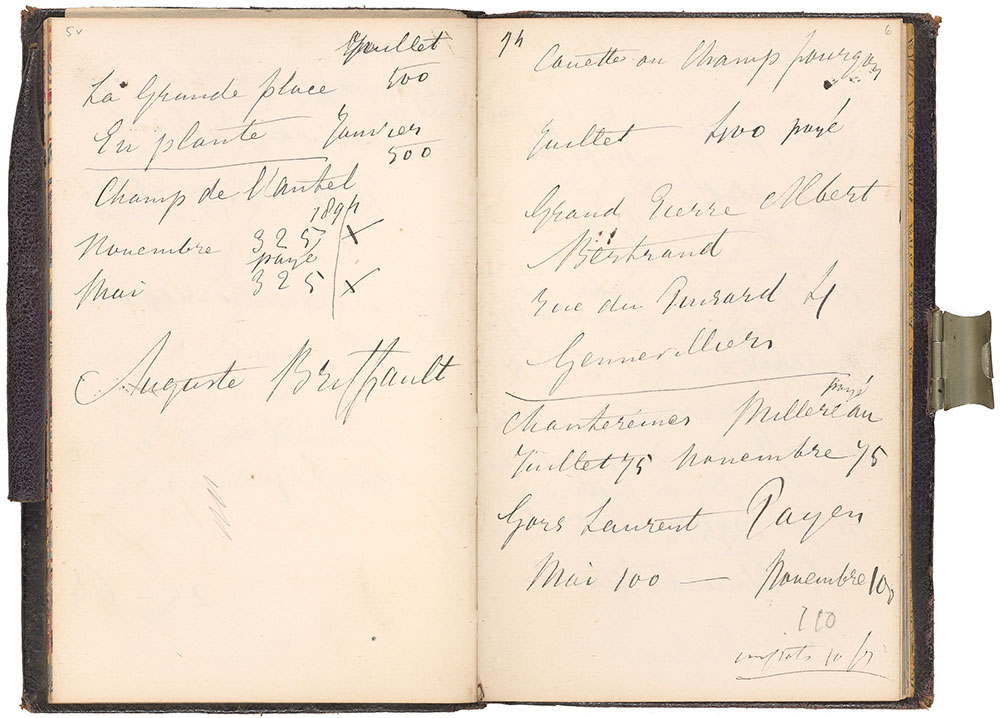 5v
Juillet
La Grande place 500
En plante Janvier
500
Champ de l'autel
1894
Novembre 325 x
payé
Mai 325 x
Auguste Briffault
6
94
Couette au Champ fourgon
Juillet 400 payé
Grand Pierre Albert
Bertrand
rue du Puisard 4
Gennevilliers
payé
Chanteréines Millereau
Juillet 75 Novembre 75
Gors Laurent Payen
Mai 100 — Novembre 100
110
impots 10 fr